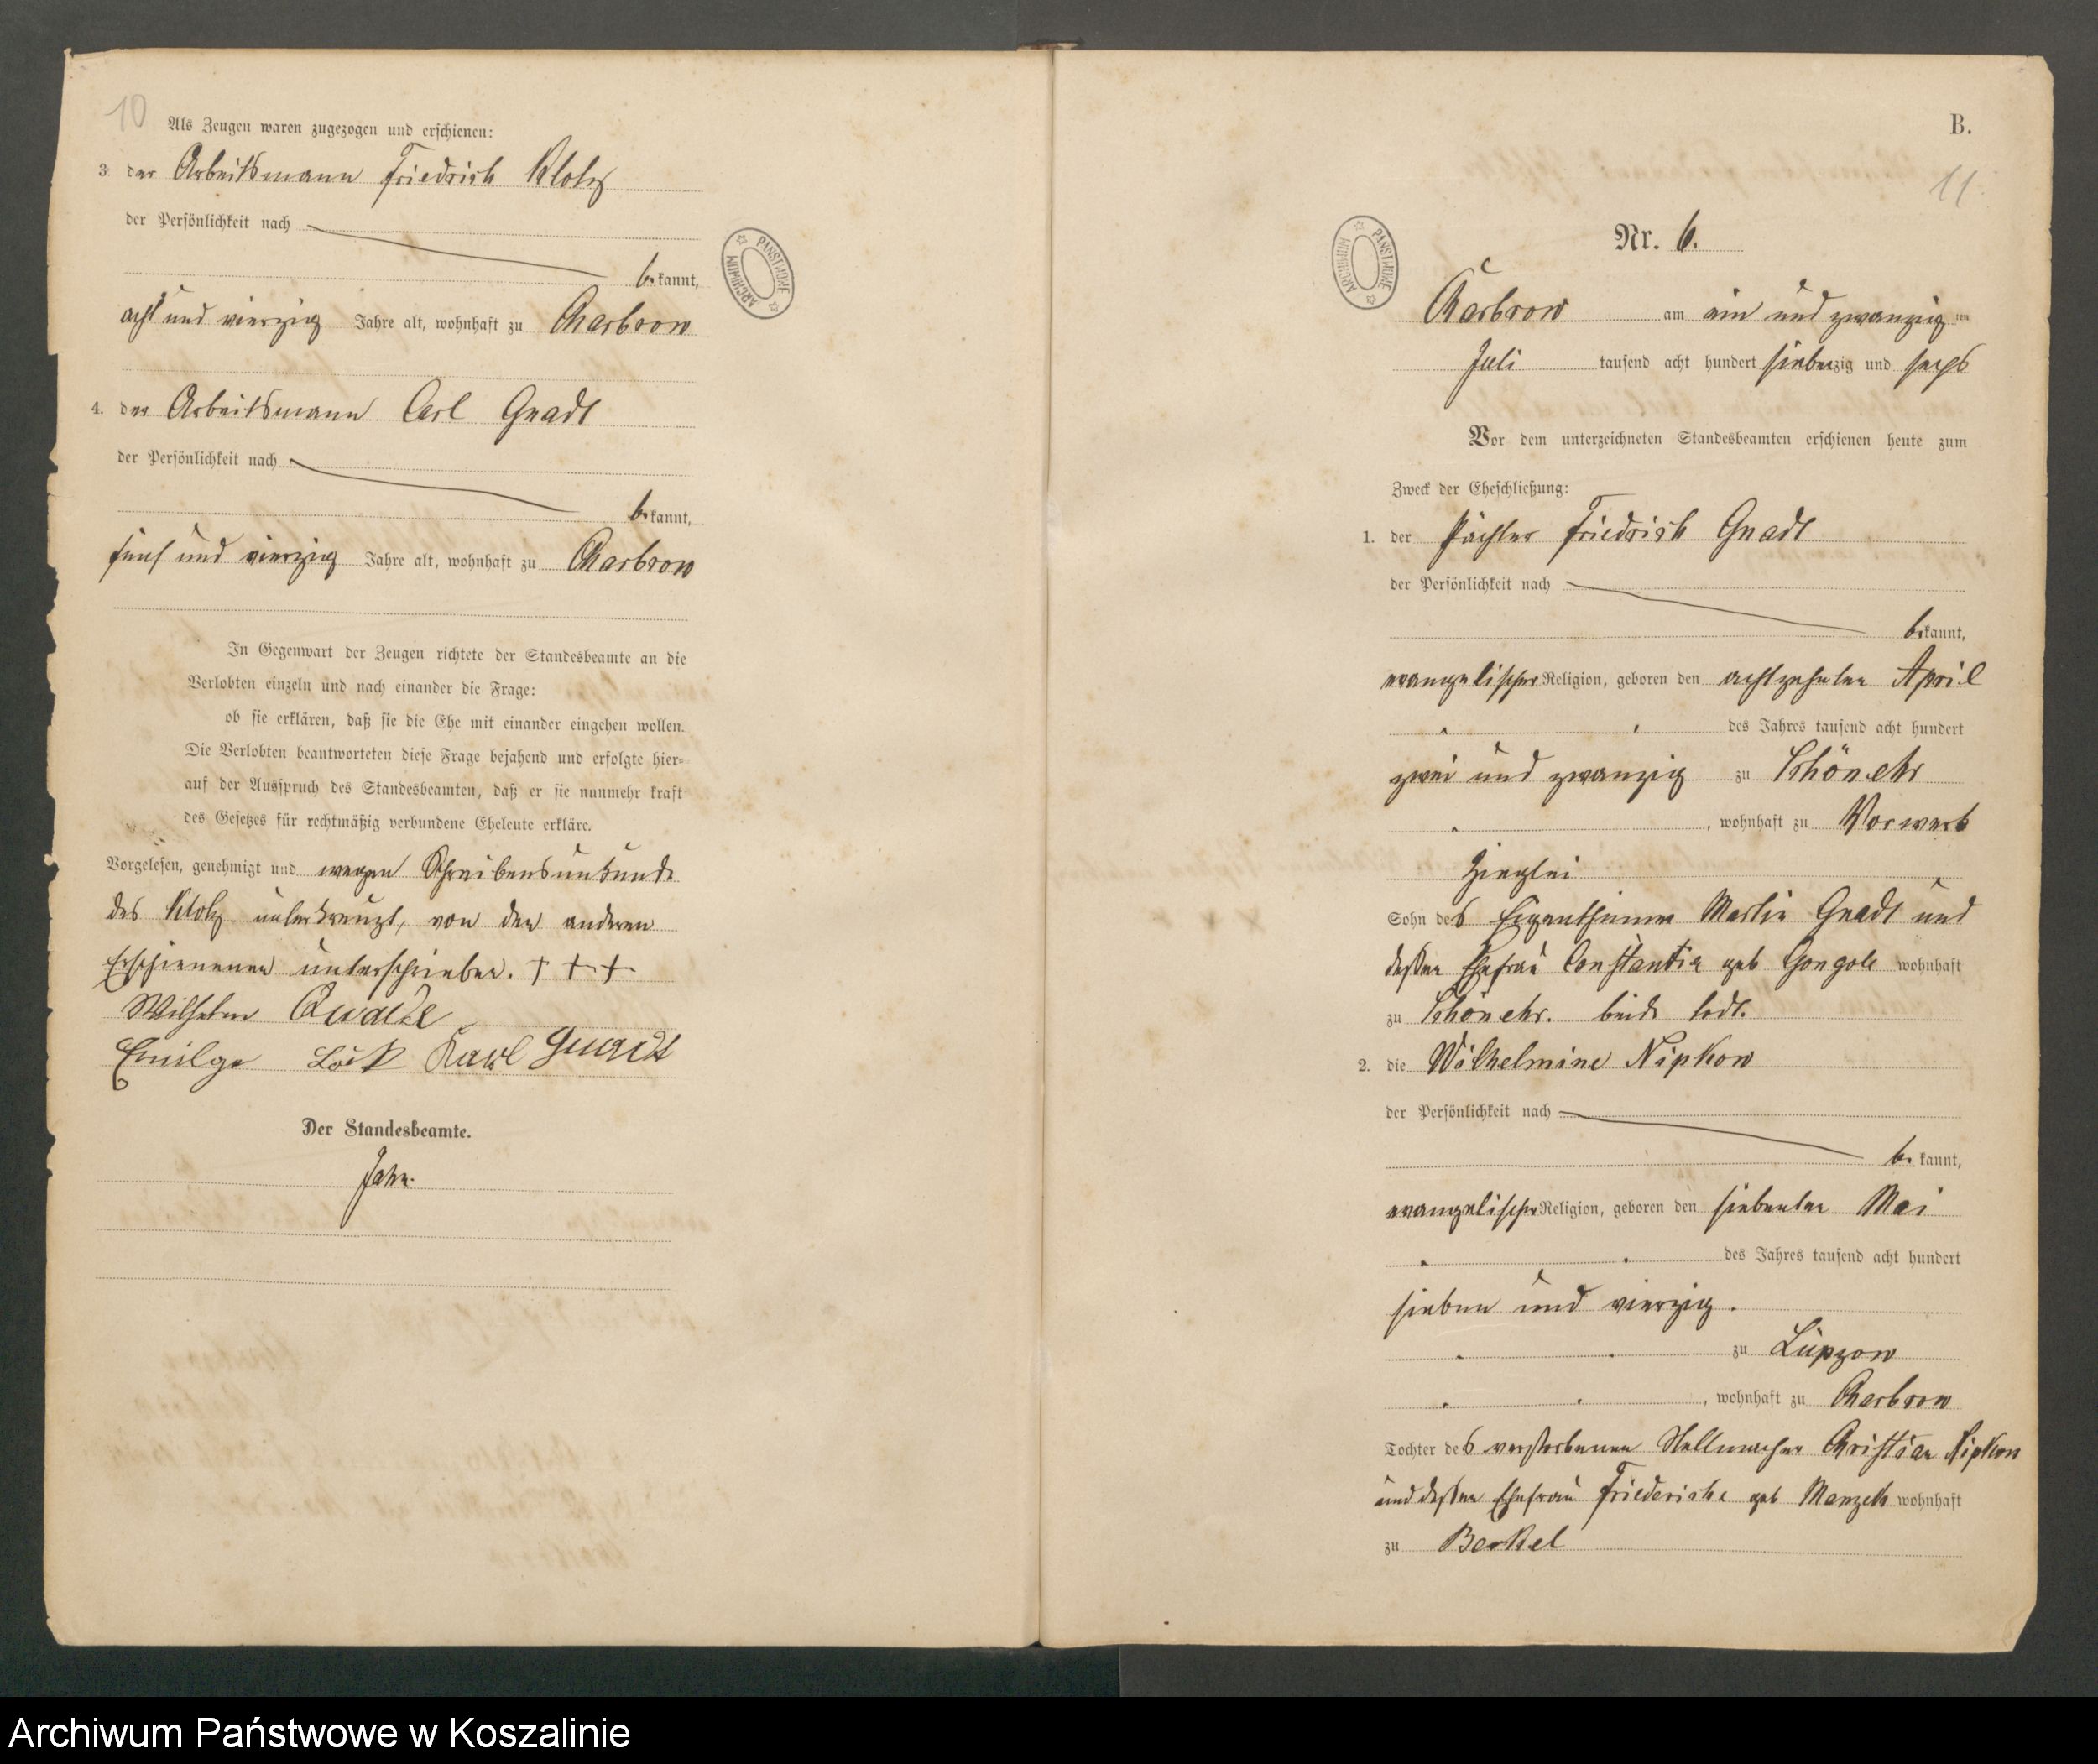 10
Als Zeugen waren zugezogen und erschienen:
3. der Arbeitsmann Friedrich Klotz
der Persönlichkeit nach
bekannt,
acht und vierzig Jahre alt, wohnhaft zu Charbrow
4. der Arbeitsmann Carl Gnadt
der Persönlichkeit nach
bekannt,
fünf und vierzig Jahre alt, wohnhaft zu Charbrow
In Gegenwart der Zeugen richtete der Standesbeamte an die
Verlobten einzeln und nach einander die Frage:
ob sie erklären, daß sie die Ehe mit einander eingehen wollen.
Die Verlobten beantworteten diese Frage bejahend und erfolgte hier-
auf der Ausspruch des Standesbeamten, daß er sie nunmehr kraft
des Gesetzes für rechtmäßig verbundene Eheleute erkläre.
Vorgelesen, genehmigt und wegen Schreibensunkunde
des Klotz unterkreuzt, von den anderen
Erschienenen unterschrieben. + + +
Wilhelm
Karl Gnadt
Der Standesbeamte.
Jahn.
ARCHIWUM PAŃSTWOWE
B.
11
ARCHIWUM PAŃSTWOWE
Nr. 6.
Charbrow am ein und zwanzig ten
Juli tausend acht hundert siebenzig und sechs
Vor dem unterzeichneten Standesbeamten erschienen heute zum
Zweck der Eheschließung:
1. der Pächter Friedrich Gnadt
der Persönlichkeit nach
bekannt,
evangelischer Religion, geboren den achtzehnten April
des Jahres tausend acht hundert
zwei und zwanzig zu Schönehr
, wohnhaft zu Vorwerk
Ziegelei
Sohn des Eigenthümer Martin Gnadt und
dessen Ehefrau Constantia geb Gongoll wohnhaft
zu Schönehr. beide todt.
2. die Wilhelmine Nipkow
der Persönlichkeit nach
bekannt,
evangelischer Religion, geboren den siebenten Mai
des Jahres tausend acht hundert
sieben und vierzig.
zu Lüpzow
, wohnhaft zu Charbrow
Tochter des verstorbenen Stellmacher Christian Nipkow
und dessen Ehefrau Friedericke geb Manzek wohnhaft
zu
Archiwum Państwowe w Koszalinie